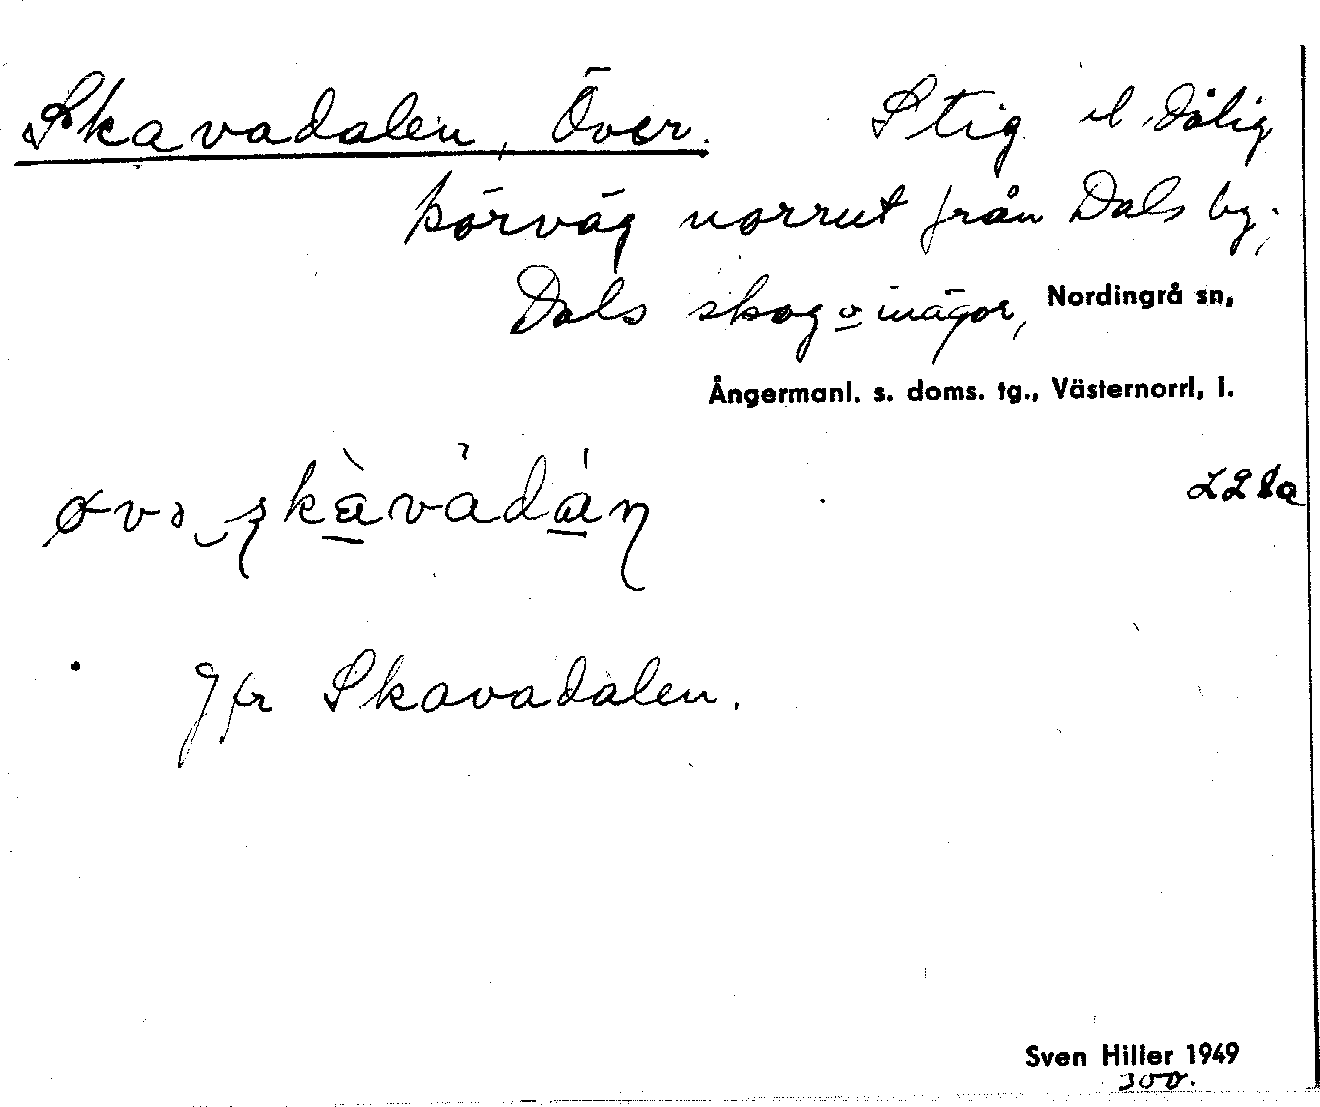 Skavadalen, Över. Stig el. dålig
körväg norrut från Dals by;
Dals skog o inägor, Nordingrå sn,
Ångermanl. s. doms. tg., Västernorrl, l.
Jfr Skavadalen.
Sven Hiller 1949
300.